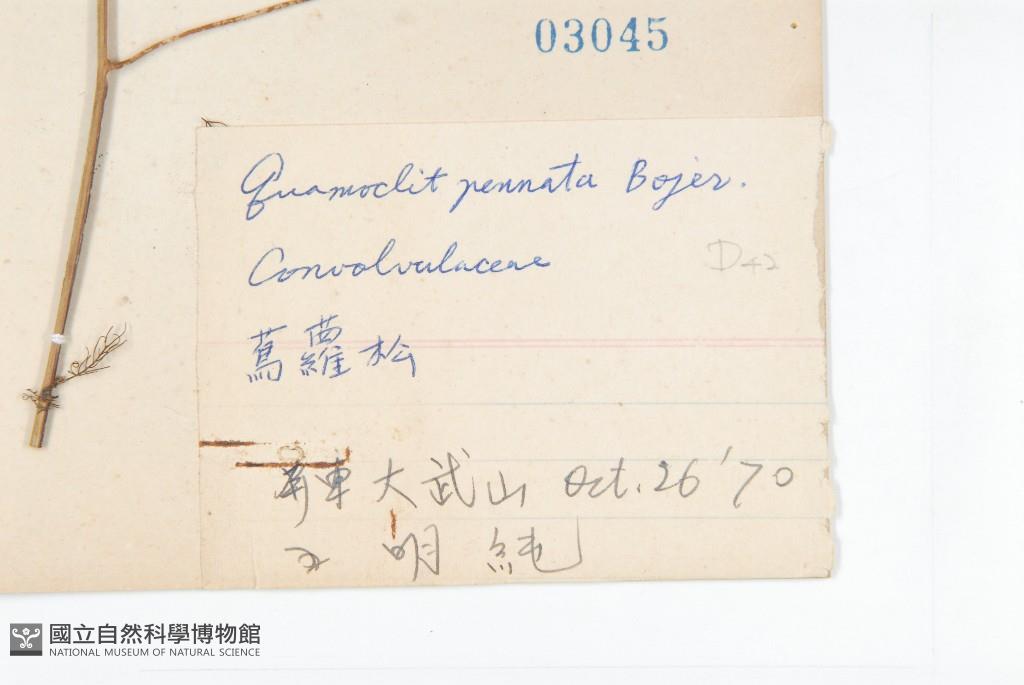 03045
Quamoclit pennata Bojer.
Convolvulaceae
D42
蔦蘿松
屏東大武山 Oct. 26 '70
明純
國立自然科學博物館
NATIONAL MUSEUM OF NATURAL SCIENCE